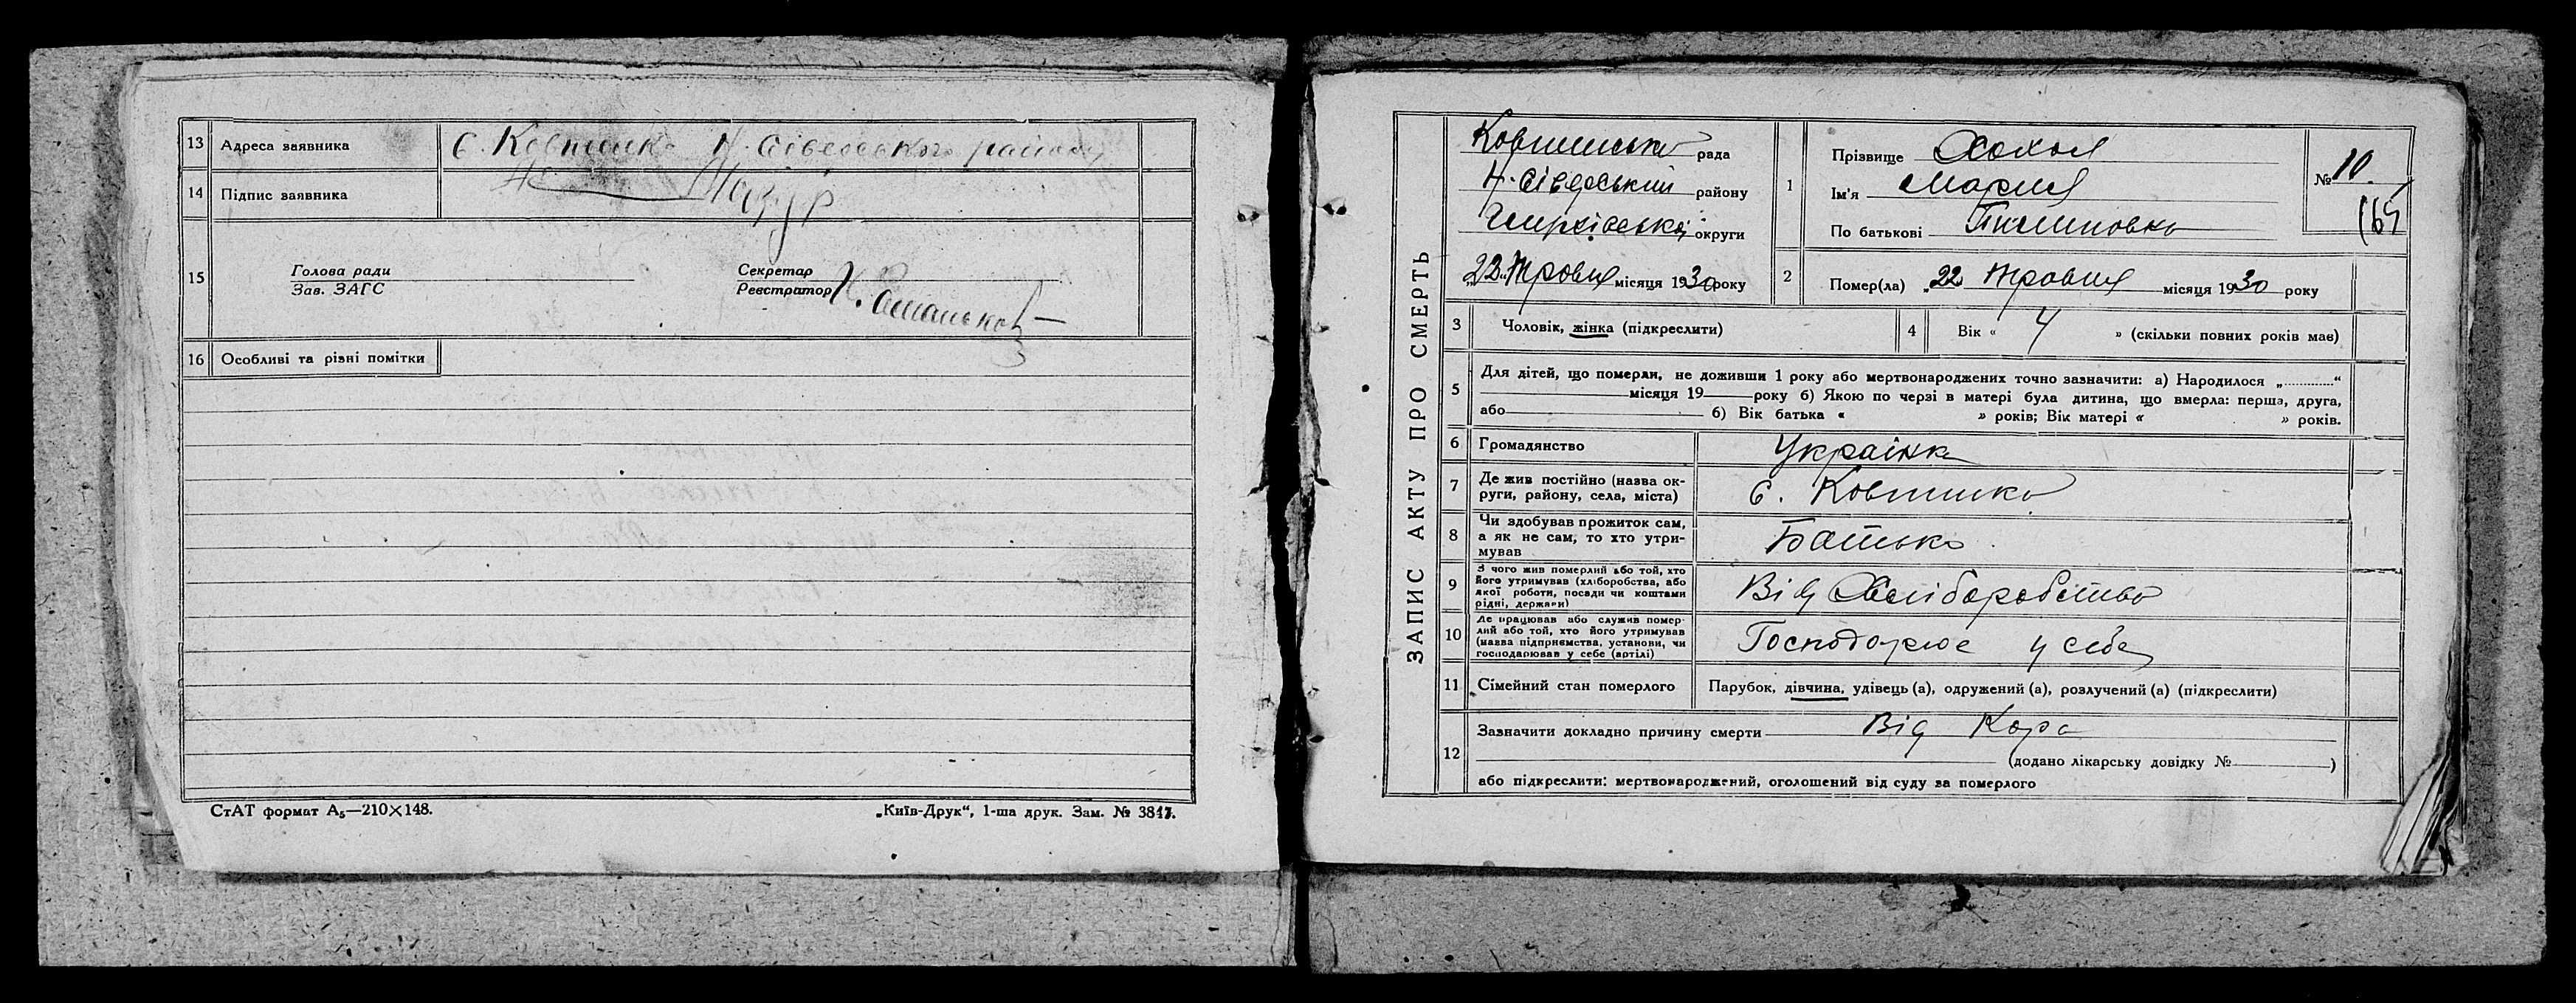 13 Адреса заявника с. Ковпинка Н.-Сіверського району
14 Підпис заявника Мазур
15 Голова ради
Зав. ЗАГС
Секретар
Реєстратор
16 Особливі та різні помітки
СтАТ формат А₅—210×148.
„Київ-Друк“, 1-ша друк. Зам. № 3847.
ЗАПИС АКТУ ПРО СМЕРТЬ
Ковпинська рада
Н.-Сіверський району
округи
„22„ Травня місяця 1930 року
1 Прізвище Хохол
Ім'я Мария
По батькові
№ 10.
2 Помер(ла) „22 Травня місяця 1930 року
3 Чоловік, жінка (підкреслити)
4 Вік « 4 » (скільки повних років має)
5 Для дітей, що померли, не доживши 1 року або мертвонароджених точно зазначити: а) Народилося „............“
місяця 19 року б) Якою по черзі в матері була дитина, що вмерла: перша, друга,
або б) Вік батька « » років; Вік матері « » років.
6 Громадянство Українка
7 Де жив постійно (назва ок-
руги, району, села, міста) с. Ковпинка
8 Чи здобував прожиток сам,
а як не сам, то хто утри-
мував Батько
9 З чого жив померлий або той, хто
його утримував (хліборобства, або
якої роботи, посади чи коштами
рідні, держави) Від Хліборобства
10 Де працював або служив помер-
лий або той, хто його утримував
(назва підприємства, установи, чи
господарював у себе (артілі) Господарює у себе
11 Сімейний стан померлого Парубок, дівчина, удівець (а), одружений (а), розлучений (а) (підкреслити)
12 Зазначити докладно причину смерти Від Кора
(додано лікарську довідку № )
або підкреслити: мертвонароджений, оголошений від суду за померлого